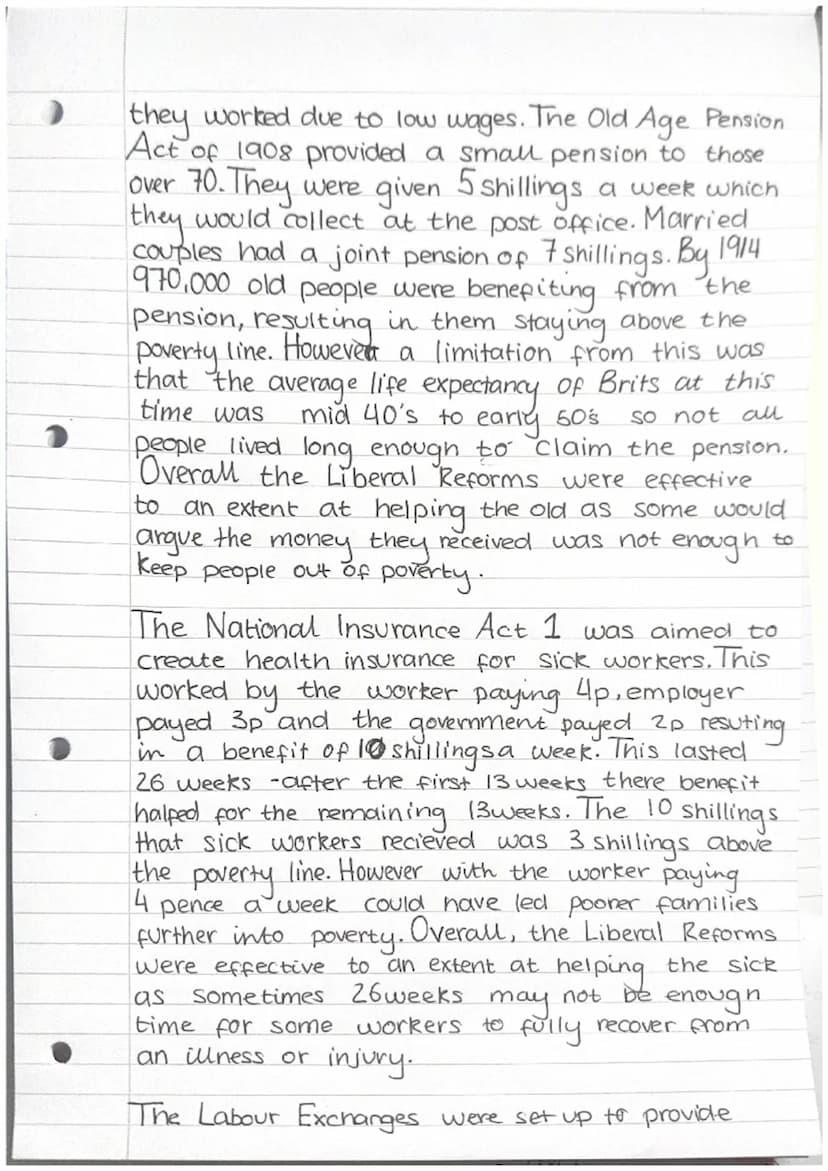 they worked due to low wages. The Old Age Pension
Act of 1908 provided a small pension to those
over 70. They were given 5 shillings a week which
they would collect at the post office. Married
couples had a joint pension of 7 shillings. By 1914
970,000 old people were benefiting from the
pension, resulting in them staying above the
poverty line. However a limitation from this was
that the average life expectancy of Brits at this
time was mid 40's to early 50's so not all
people lived long enough to claim the pension.
Overall the Liberal Reforms were effective
to an extent at helping the old as some would
argue the money they received was not enough to
keep people out of poverty.
The National Insurance Act 1 was aimed to
create health insurance for sick workers. This
worked by the worker paying 4p, employer
payed 3p and the government payed 2p resuting
in a benefit of 10 shillings a week. This lasted
26 weeks - after the first 13 weeks there benefit
halfed for the remaining 13 weeks. The 10 shillings
that sick workers recieved was 3 shillings above
the poverty line. However with the worker paying
4 pence a week could have led poorer families
further into poverty. Overall, the Liberal Reforms
were effective to an extent at helping the sick
as sometimes 26 weeks may not be enough
time for some workers to fully recover from
an illness or injury.
The Labour Exchanges were set up to provide